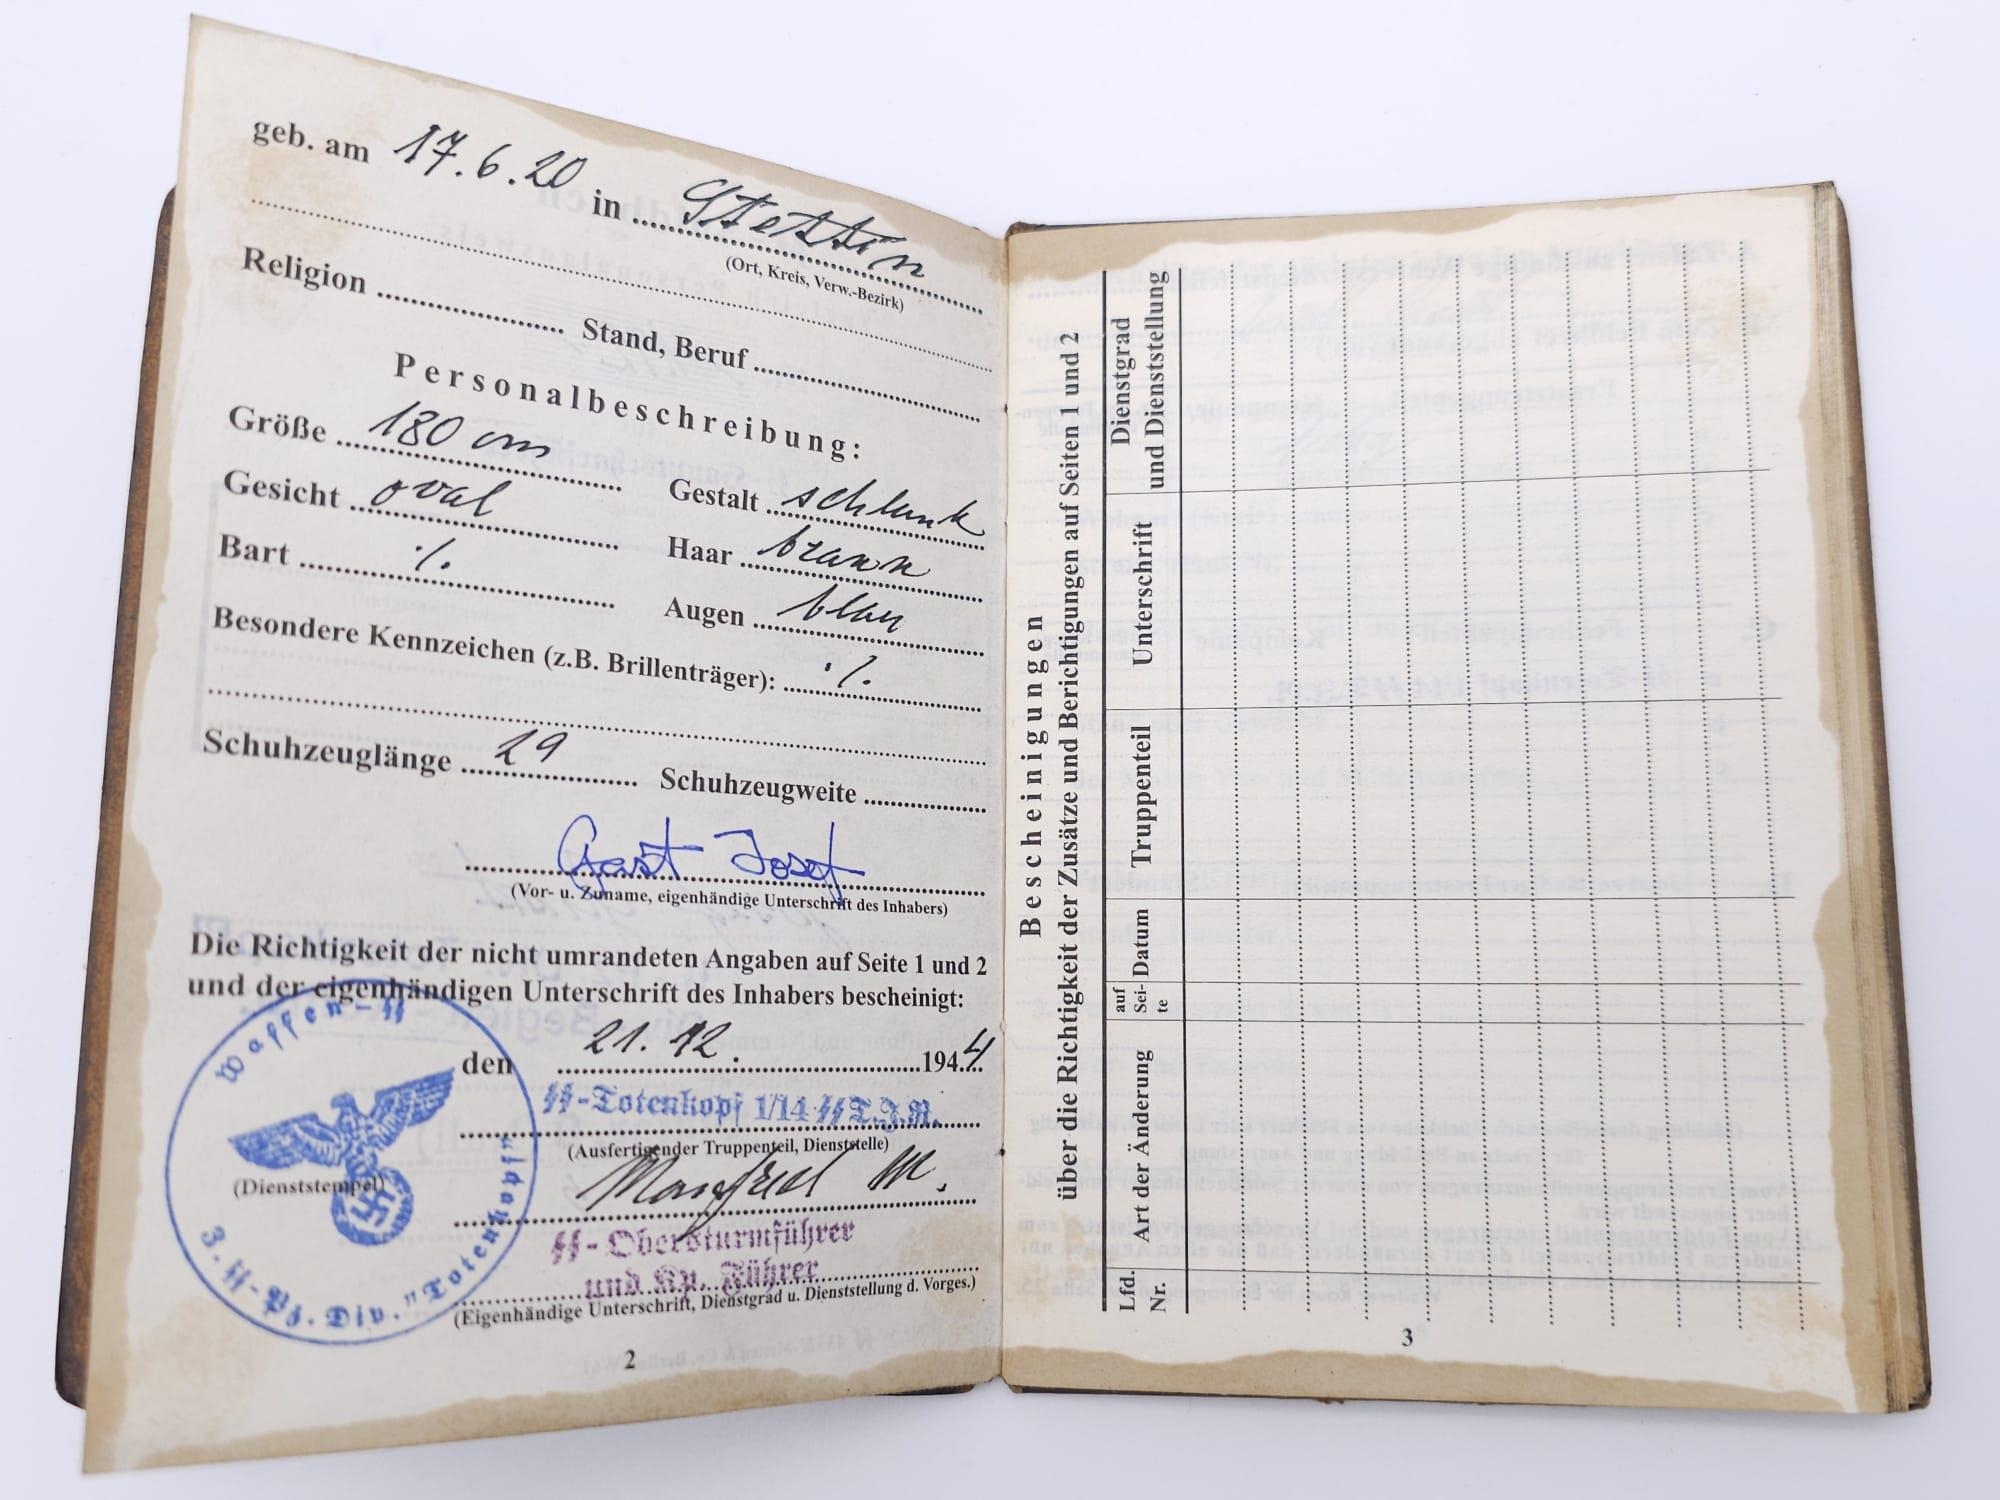 geb. am 17.6.20 in Stettin
(Ort, Kreis, Verw.-Bezirk)
Religion Stand, Beruf
Personalbeschreibung:
Größe 180 cm Gestalt schlank
Gesicht oval Haar braun
Bart ·/. Augen blau
Besondere Kennzeichen (z.B. Brillenträger): ·/.
Schuhzeuglänge 29 Schuhzeugweite
Gast Josef
(Vor- u. Zuname, eigenhändige Unterschrift des Inhabers)
Die Richtigkeit der nicht umrandeten Angaben auf Seite 1 und 2
und der eigenhändigen Unterschrift des Inhabers bescheinigt:
den 21.12. 1944
SS-Totenkopf 1/14 SS T.J.R.
(Ausfertigender Truppenteil, Dienststelle)
Manfred M.
SS-Obersturmführer
und Kp. Führer
(Eigenhändige Unterschrift, Dienstgrad u. Dienststellung d. Vorges.)
Waffen-SS
(Dienststempel)
3. SS-Pz. Div. "Totenkopf"
2
Bescheinigungen
über die Richtigkeit der Zusätze und Berichtigungen auf Seiten 1 und 2
Lfd. Nr.
Art der Änderung
auf Sei-te
Datum
Truppenteil
Unterschrift
Dienstgrad und Dienststellung
3